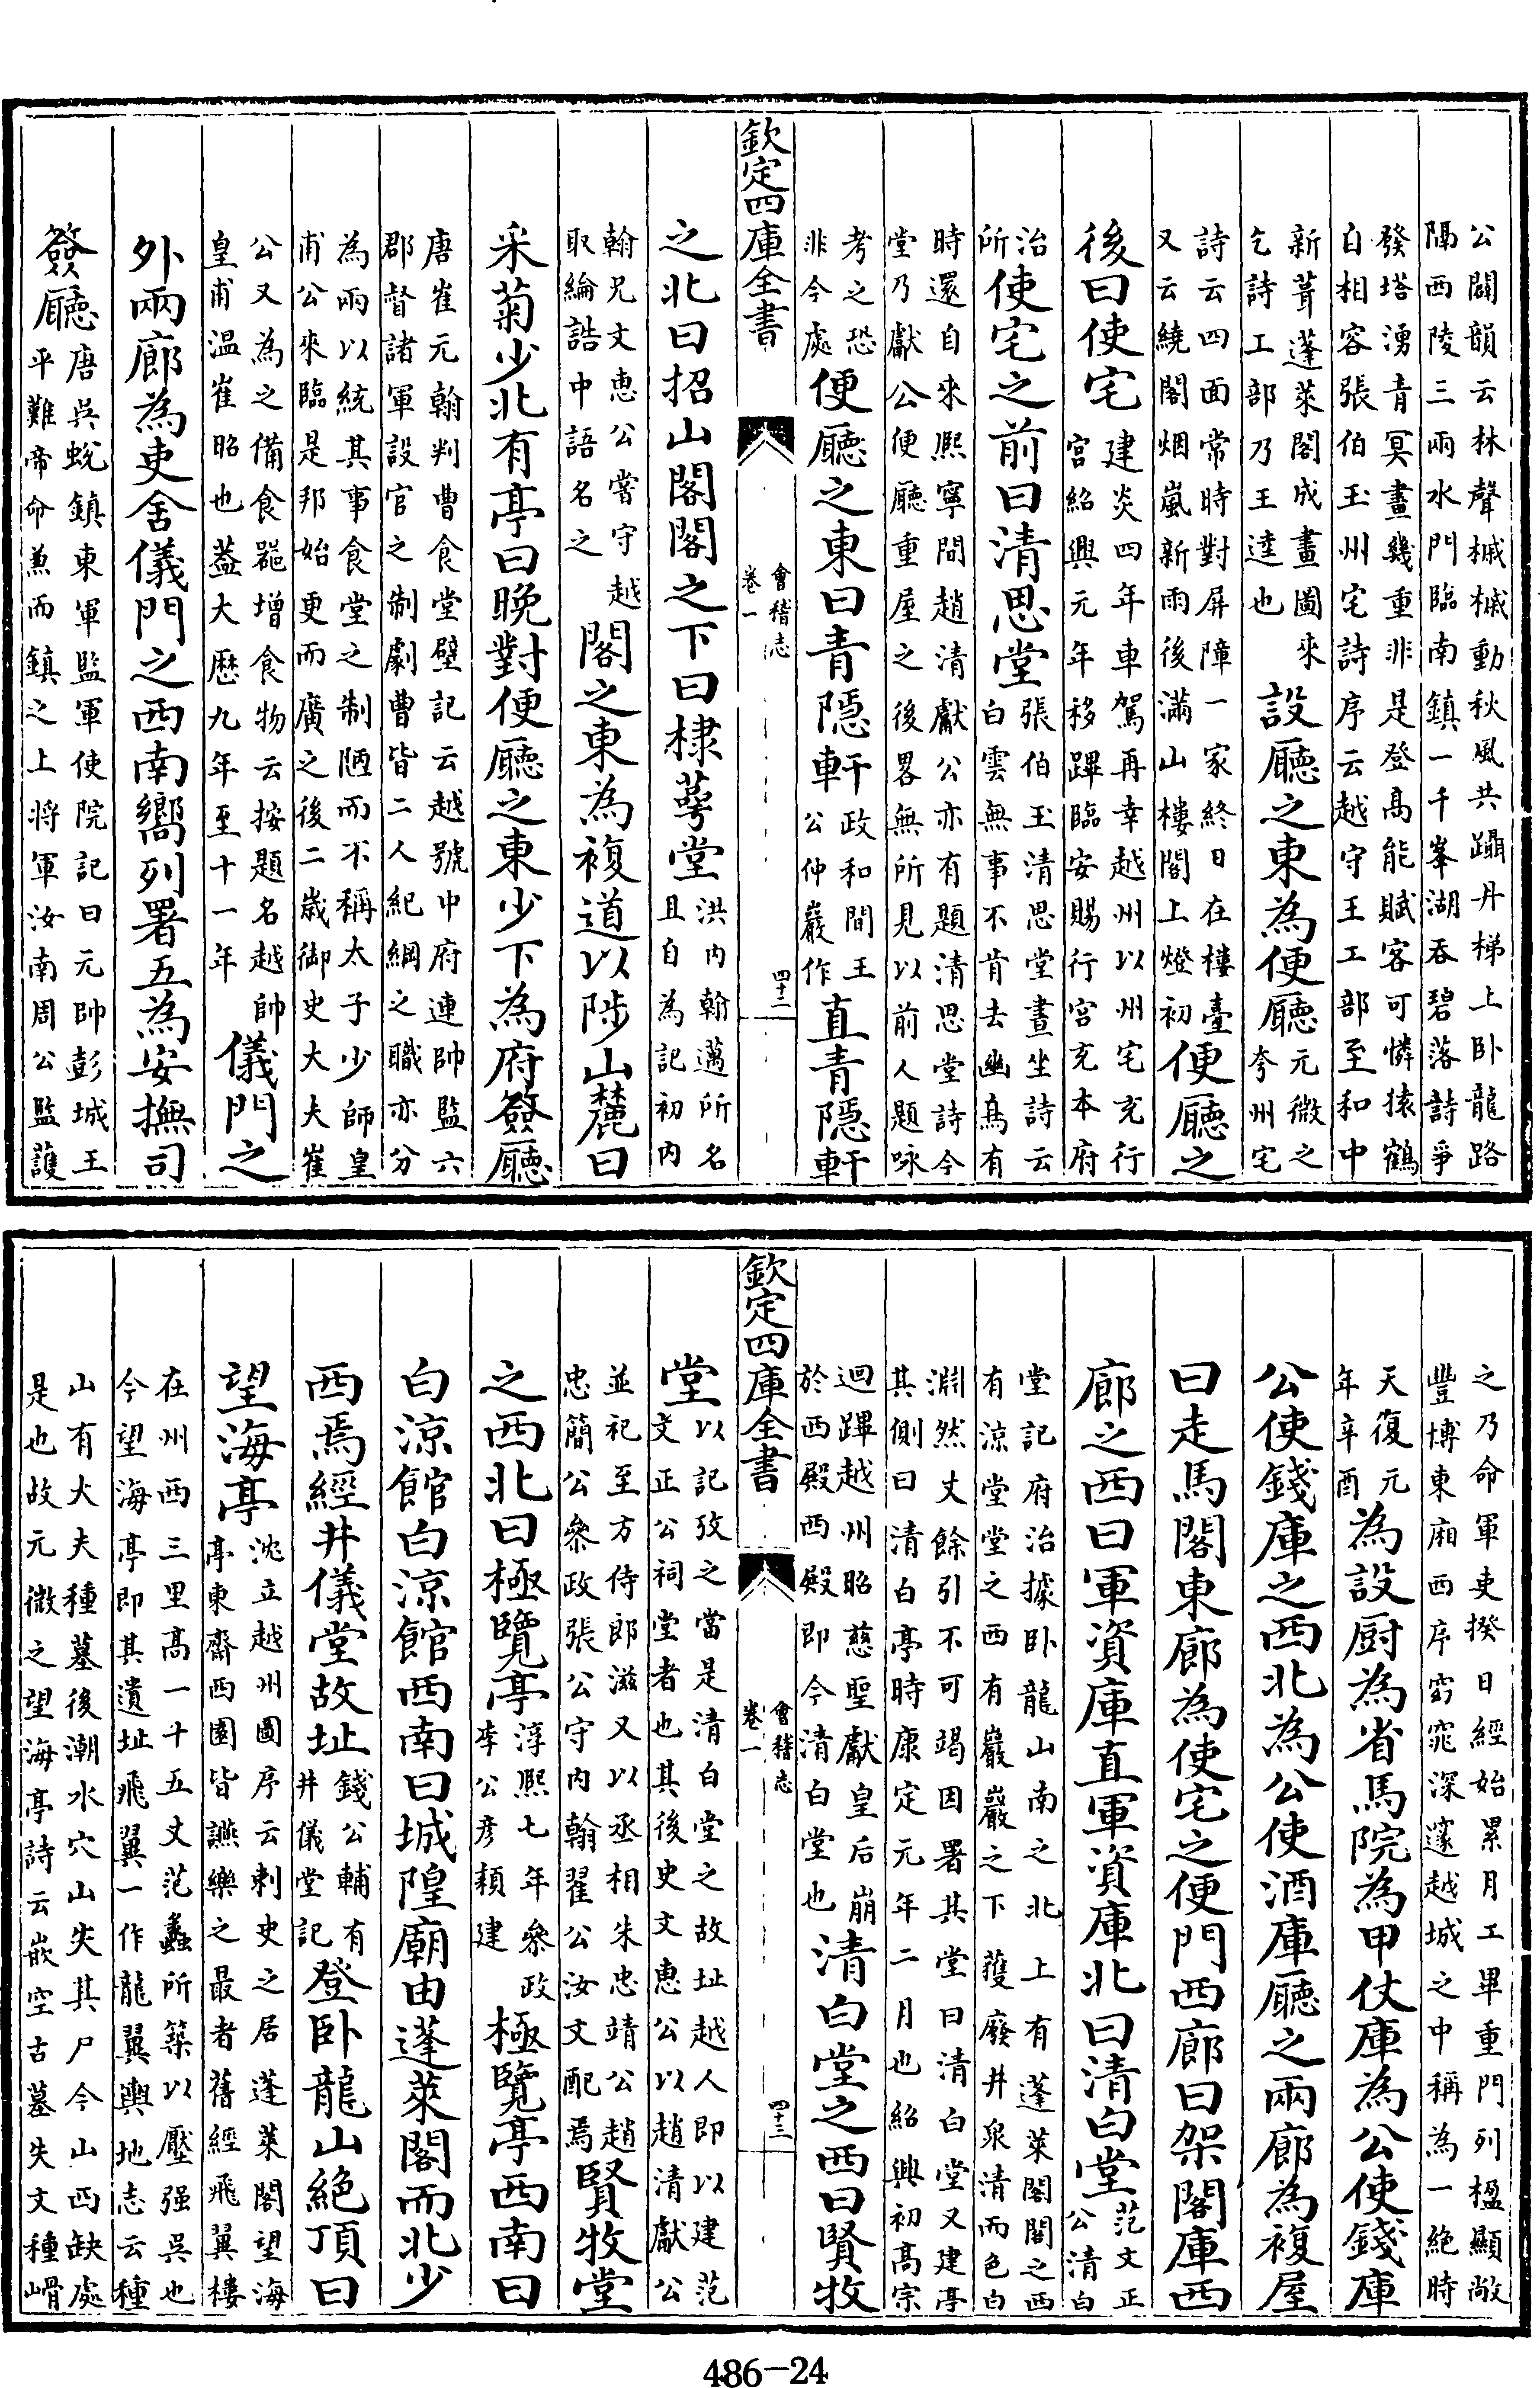 公闢韻云林聲槭槭動秋風共躡丹梯上卧龍路
隔西陵三兩水門臨南鎮一千峯湖吞碧落詩爭
發塔湧青冥畫幾重非是登高能賦客可憐猿鶴
自相容張伯玉州宅詩序云越守王工部至和中
新葺蓬萊閣成畫圖來
乞詩工部乃王逵也
設廳之東為便廳
元微之
夸州宅
詩云四面常時對屏障一家終日在樓臺
又云繞閣烟嵐新雨後滿山樓閣上燈初
便廳之
後曰使宅
建炎四年車駕再幸越州以州宅充行
宫紹興元年移蹕臨安賜行宫充本府
治
所
使宅之前曰清思堂
張伯玉清思堂晝坐詩云
白雲無事不肯去幽鳥有
時還自來熙寧間趙清獻公亦有題清思堂詩今
堂乃獻公便廳重屋之後畧無所見以前人題咏
考之恐
非今處
便廳之東曰青隱軒
政和間王
公仲嶷作
直青隱軒
欽定四庫全書
會稽志
卷一
四十二
之北曰招山閣閣之下曰棣萼堂
洪内翰邁所名
且自為記初内
翰兄文惠公嘗守越
取綸誥中語名之
閣之東為複道以陟山麓曰
采菊少北有亭曰晚對便廳之東少下為府簽廳
唐崔元翰判曹食堂壁記云越號中府連帥監六
郡督諸軍設官之制劇曹皆二人紀綱之職亦分
為兩以統其事食堂之制陋而不稱太子少師皇
甫公來臨是邦始更而廣之後二歲御史大夫崔
公又為之備食噐增食物云按題名越帥
皇甫溫崔昭也葢大歴九年至十一年
儀門之
外兩廊為吏舍儀門之西南嚮列署五為安撫司
簽廳
唐吳蛻鎮東軍監軍使院記曰元帥彭城王
平難帝命兼而鎮之上將軍汝南周公監護
之乃命軍吏揆日經始累月工畢重門列楹顯敞
豐博東廂西序窈窕深邃越城之中稱為一絶時
天復元
年辛酉
為設厨為省馬院為甲仗庫為公使錢庫
公使錢庫之西北為公使酒庫廳之兩廊為複屋
曰走馬閣東廊為使宅之便門西廊曰架閣庫西
廊之西曰軍資庫直軍資庫北曰清白堂
范文正
公清白
堂記府治據卧龍山南之北上有蓬萊閣閣之西
有涼堂堂之西有巖巖之下獲廢井泉清而色白
淵然丈餘引不可竭因署其堂曰清白堂又建亭
其側曰清白亭時康定元年二月也紹興初髙宗
迴蹕越州昭慈聖獻皇后崩
於西殿西殿即今清白堂也
清白堂之西曰賢牧
欽定四庫全書
會稽志
卷一
四十三
堂
以記攷之當是清白堂之故址越人即以建范
文正公祠堂者也其後史文惠公以趙清獻公
並祀至方侍郎滋又以丞相朱忠靖公趙
忠簡公叅政張公守内翰翟公汝文配焉
賢牧堂
之西北曰極覽亭
淳熙七年叅政
李公彦頴建
極覽亭西南曰
白涼館白涼館西南曰城隍廟由蓬萊閣而北少
西焉經井儀堂故址
錢公輔有
井儀堂記
登卧龍山絶頂曰
望海亭
沈立越州圖序云刺史之居蓬萊閣望海
亭東齋西園皆讌樂之最者舊經飛翼樓
在州西三里髙一十五丈范蠡所築以壓强吳也
今望海亭即其遺址飛翼一作龍翼輿地志云種
山有大夫種墓後潮水穴山失其尸今山西缺處
是也故元微之望海亭詩云嵌空古墓失文種嵴
486-24